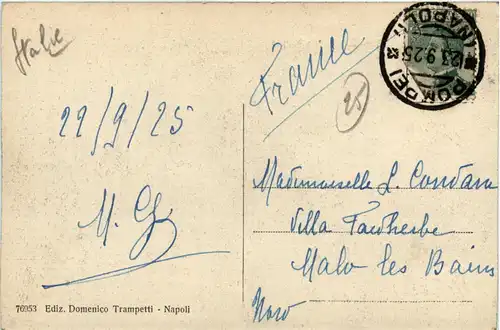 Italie
22/9/25
M. G
76953 Ediz. Domenico Trampetti - Napoli
France
25
POMPEI
(NAPOLI)
23.9.25
Mademoiselle L. Condara
Villa Faidherbe
Malo les Bains
Nord